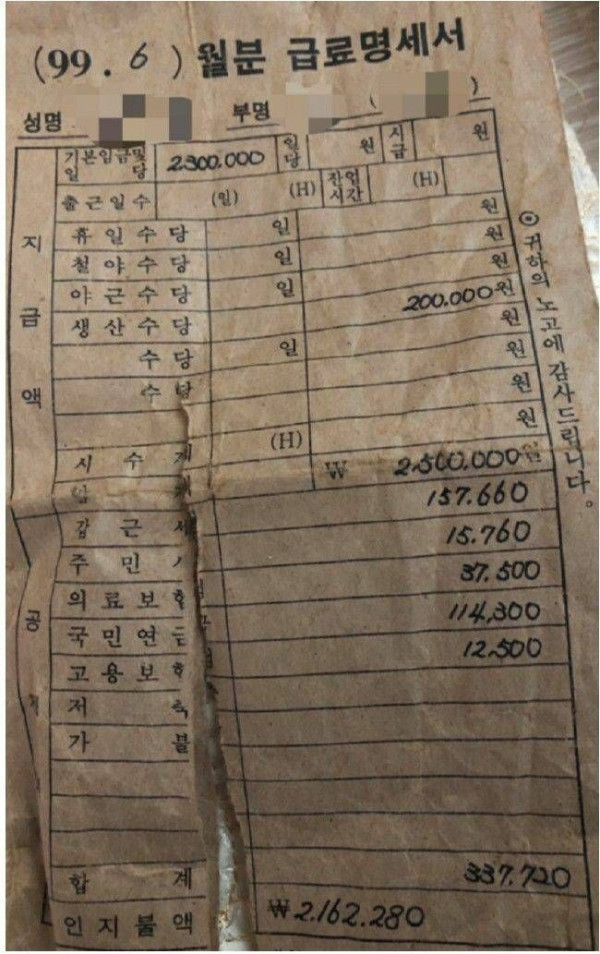 (99. 6) 월분 급료명세서
성명 부명 ( )
기본임금및일당 2.300.000 일당 원 시급 원
출근일수 (일) (H) 잔업시간 (H)
지급액
휴일수당 일 원
철야수당 일 원
야근수당 일 원
생산수당 200.000원
수당 일 원
수당 원
원
(H) 원
시수계
합계 ₩ 2.500.000원
공제
갑근세 157.660
주민 15.760
의료보험 37.500
국민연금 114,300
고용보험 12.500
저축
가불
합계 337.720
인지불액 ₩2.162.280
⊙ 귀하의 노고에 감사드립니다.